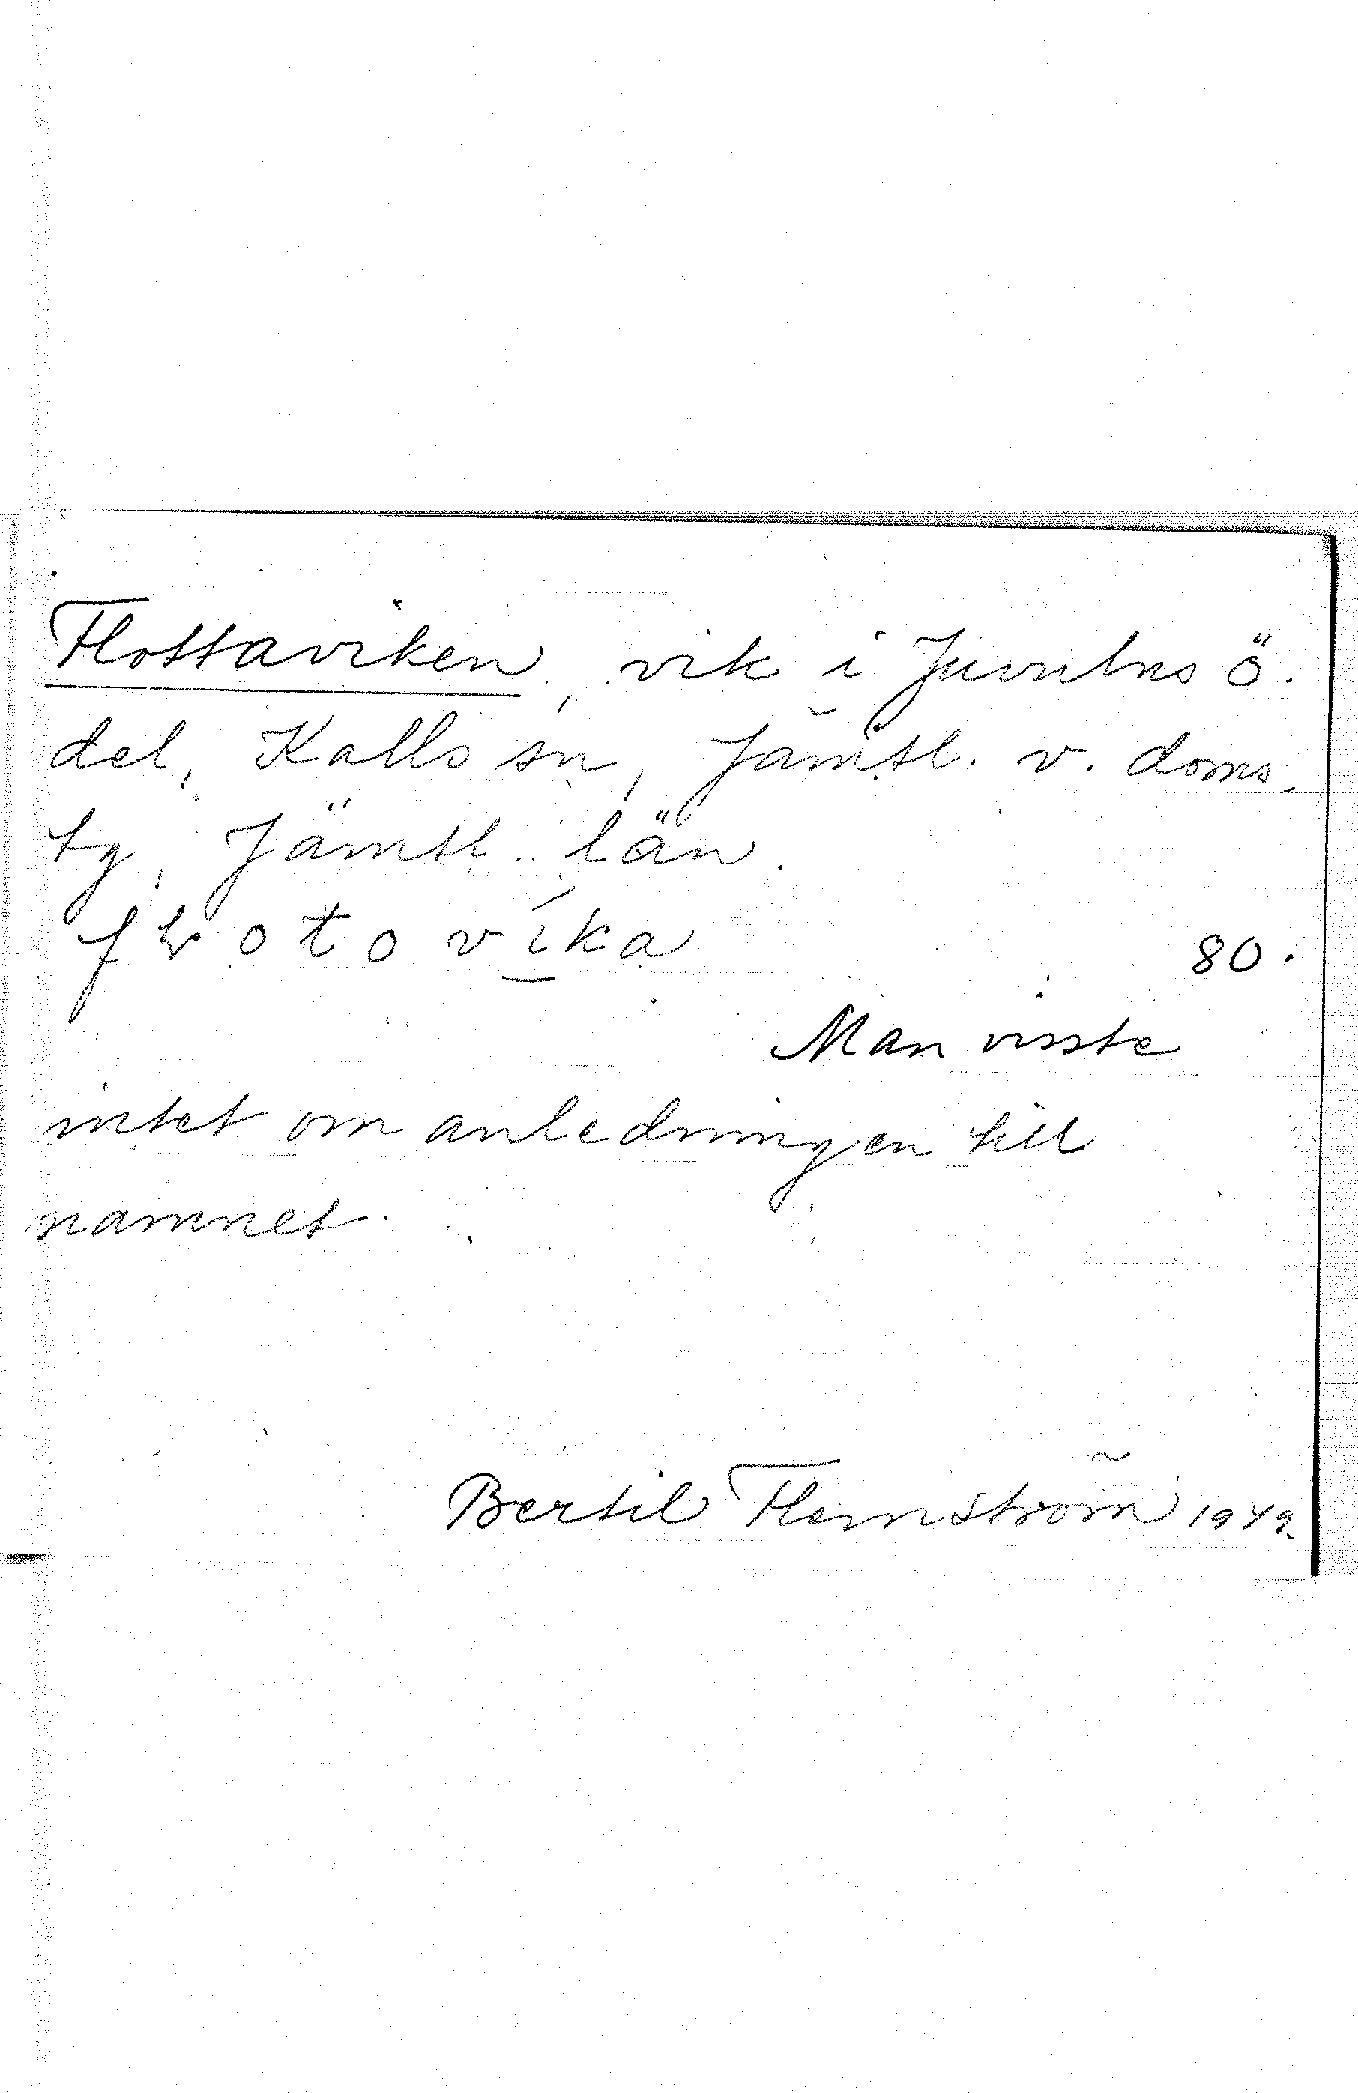 Flottaviken, vik i Juvulns ö.
del, Kalls sn, Jämtl. v. doms.
tg, Jämtl. län.
flotovíka 80.
Man visste
intet om anledningen till
namnet.
Bertil Flemström 1942